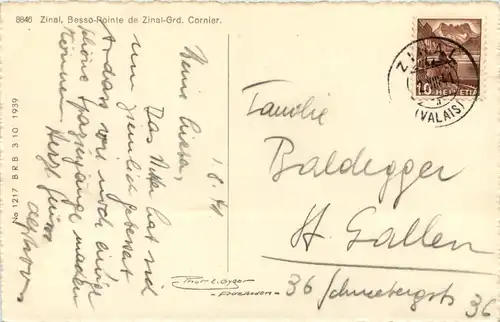 8846 Zinal, Besso-Pointe de Zinal-Grd. Cornier.
1. 8. 41
Meine Lieben,
Das Wetter hat sich
nun ziemlich gebessert
sodass wir noch einige
schöne Spaziergänge machen
können. Herzl. Grüsse
No 1217 B R B 3.10.1939
ZINAL
(VALAIS)
10 HELVETIA
Familie
Baldegger
St. Gallen
36 Schneebergstr. 36
Phot. E. Gyger
- ADELBODEN -